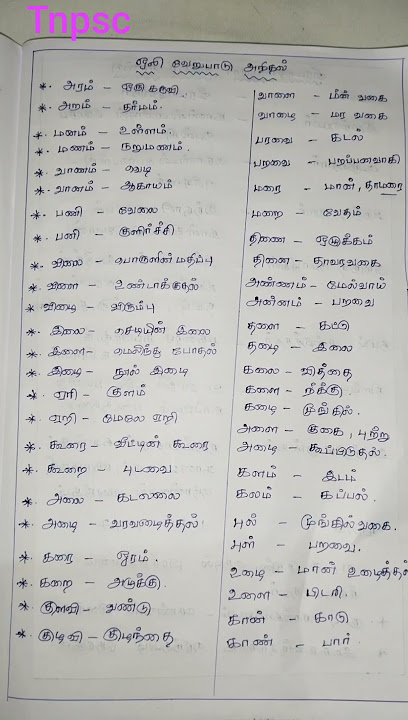 Tnpsc
ஒலி வேறுபாடு அறிதல்
* அரம் - ஒரு கருவி
* அறம் - தர்மம்.
* மனம் - உள்ளம்.
* மணம் - நறுமணம்.
* வாணம் - வெடி
* வானம் - ஆகாயம்
* பணி - வேலை
* பனி - குளிர்ச்சி
* விலை - பொருளின் மதிப்பு
* விளை - உண்டாக்குதல்
* விழை - விரும்பு
* இலை - செடியின் இலை
* இளை - மெலிந்து போதல்
* இழை - நூல் இழை
* ஏரி - குளம்
* ஏறி - மேலே ஏறி
* கூரை - வீட்டின் கூரை
* கூறை - புடவை
* அலை - கடலலை
* அழை - வரவழைத்தல்
* கரை - ஓரம்.
* கறை - அழுக்கு.
* குளவி - வண்டு
* குழவி - குழந்தை
வாளை - மீன் வகை
வாழை - மர வகை
பரவை - கடல்
பறவை - பறப்பனவாகி
மரை - மான், தாமரை
மறை - வேதம்
திணை - ஒழுக்கம்
தினை - தானியவகை
அண்ணம் - மேல்வாய்
அன்னம் - பறவை
தளை - கட்டு
தழை - இலை
கலை - வித்தை
களை - நீக்கு
கழை - மூங்கில்.
அளை - குகை, புற்று
அழை - கூப்பிடுதல்.
களம் - இடம்
கலம் - கப்பல்.
புல் - மூங்கில்வகை.
புள் - பறவை.
உழை - மான் உழைத்தல்
உளை - பிடரி
கான் - காடு
காண் - பார்